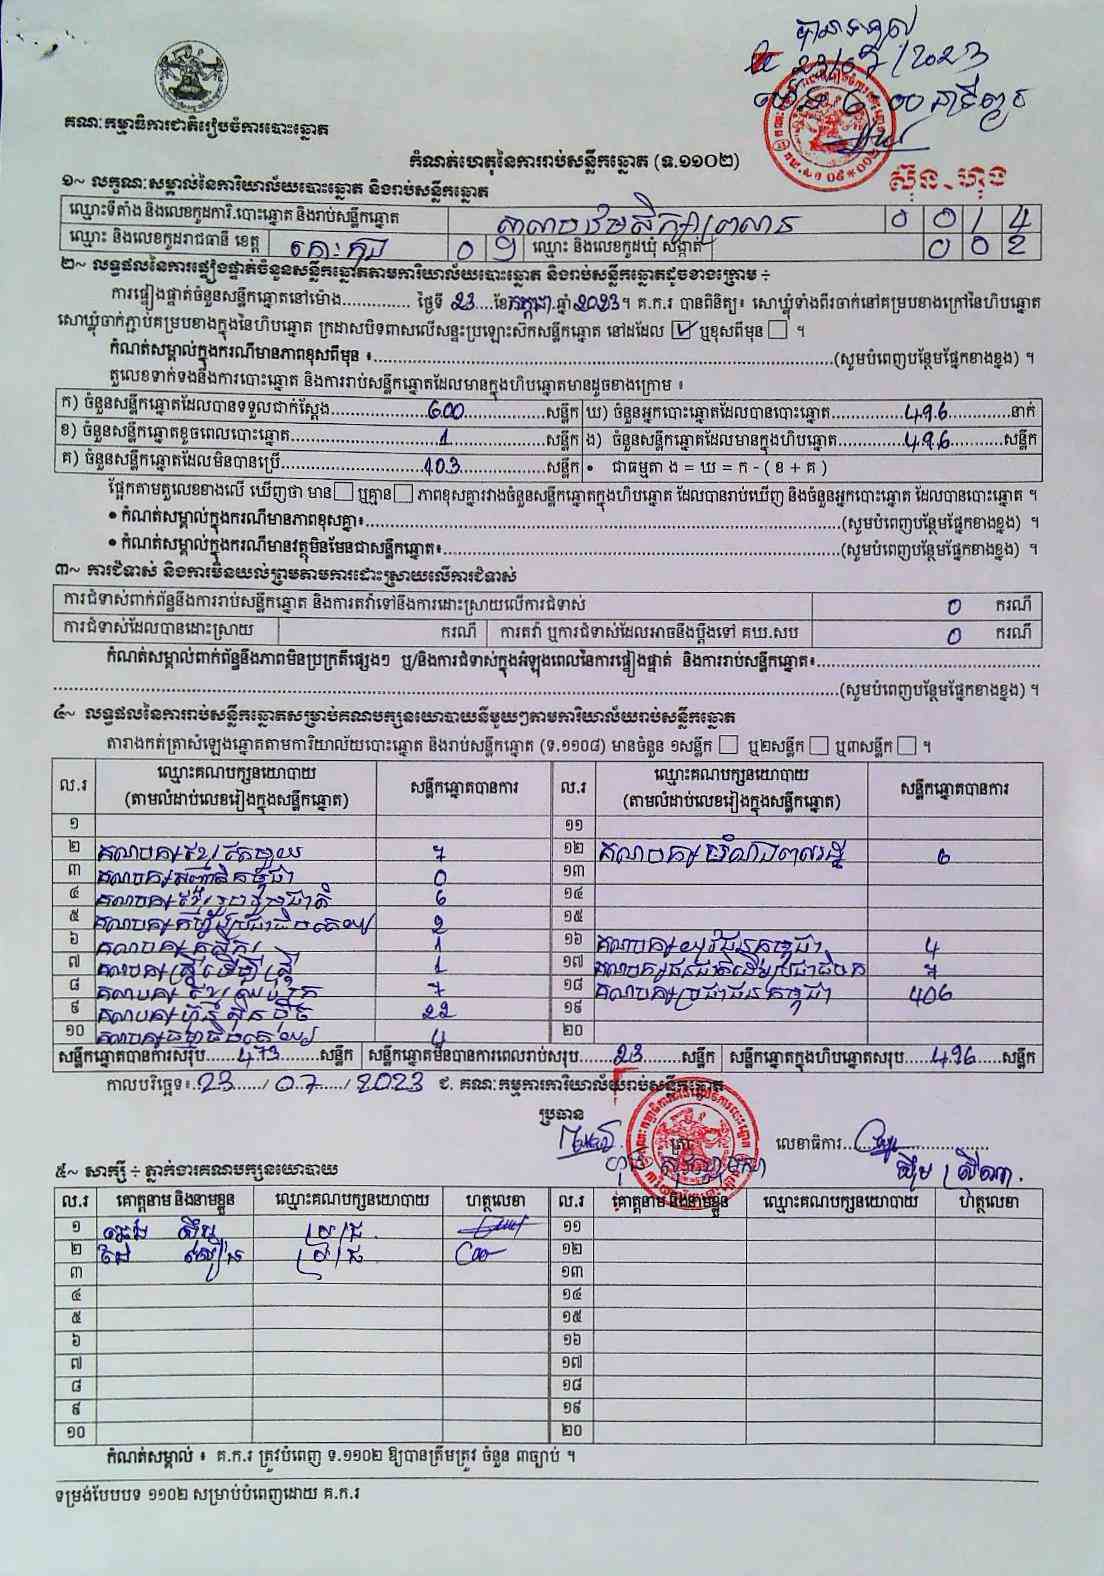 បានទទួល
23/07/2023
ម៉ោង 6:00 នាទីល្ងាច
គណៈកម្មាធិការជាតិរៀបចំការបោះឆ្នោត
កំណត់ហេតុនៃការរាប់សន្លឹកឆ្នោត (ទ.១១០២)
ស៊ុន ហុង
១~ លក្ខណៈសម្គាល់នៃការិយាល័យបោះឆ្នោត និងរាប់សន្លឹកឆ្នោត
ឈ្មោះទីតាំង និងលេខកូដការិ.បោះឆ្នោត និងរាប់សន្លឹកឆ្នោត 0 0 1 4
ឈ្មោះ និងលេខកូដរាជធានី ខេត្ត កោះកុង 0 9 ឈ្មោះ និងលេខកូដឃុំ សង្កាត់ 0 0 2
២~ លទ្ធផលនៃការផ្ទៀងផ្ទាត់ចំនួនសន្លឹកឆ្នោតតាមការិយាល័យបោះឆ្នោត និងរាប់សន្លឹកឆ្នោតដូចខាងក្រោម ÷
ការផ្ទៀងផ្ទាត់ចំនួនសន្លឹកឆ្នោតនៅម៉ោង.............. ថ្ងៃទី 23 ....ខែកក្កដា.ឆ្នាំ 2023។ គ.ក.រ បានពិនិត្យ៖ សោឃ្លុំទាំងពីរចាក់នៅគម្របខាងក្រៅនៃហិបឆ្នោត
សោឃ្លុំចាក់ភ្ជាប់គម្របខាងក្នុងនៃហិបឆ្នោត ក្រដាសបិទពាសលើសន្ទះប្រឡោះស៊កសន្លឹកឆ្នោត នៅដដែល ☑ ឬខុសពីមុន ☐ ។
កំណត់សម្គាល់ក្នុងករណីមានភាពខុសពីមុន ៖..............................(សូមបំពេញបន្ថែមផ្នែកខាងខ្នង) ។
តួលេខទាក់ទងនឹងការបោះឆ្នោត និងការរាប់សន្លឹកឆ្នោតដែលមានក្នុងហិបឆ្នោតមានដូចខាងក្រោម ៖
ក) ចំនួនសន្លឹកឆ្នោតដែលបានទទួលជាក់ស្តែង..........600..........សន្លឹក ឃ) ចំនួនអ្នកបោះឆ្នោតដែលបានបោះឆ្នោត..........496..........នាក់
ខ) ចំនួនសន្លឹកឆ្នោតខូចពេលបោះឆ្នោត..........1..........សន្លឹក ង) ចំនួនសន្លឹកឆ្នោតដែលមានក្នុងហិបឆ្នោត..........496..........សន្លឹក
គ) ចំនួនសន្លឹកឆ្នោតដែលមិនបានប្រើ..........103..........សន្លឹក • ជាធម្មតា ង = ឃ = ក - ( ខ + គ )
ផ្អែកតាមតួលេខខាងលើ ឃើញថា មាន ☐ ឬគ្មាន ☐ ភាពខុសគ្នារវាងចំនួនសន្លឹកឆ្នោតក្នុងហិបឆ្នោត ដែលបានរាប់ឃើញ និងចំនួនអ្នកបោះឆ្នោត ដែលបានបោះឆ្នោត ។
• កំណត់សម្គាល់ក្នុងករណីមានភាពខុសគ្នា៖..............................(សូមបំពេញបន្ថែមផ្នែកខាងខ្នង) ។
• កំណត់សម្គាល់ក្នុងករណីមានវត្ថុមិនមែនជាសន្លឹកឆ្នោត៖..............................(សូមបំពេញបន្ថែមផ្នែកខាងខ្នង) ។
៣~ ការជំទាស់ និងការមិនយល់ព្រមតាមការដោះស្រាយលើការជំទាស់
ការជំទាស់ពាក់ព័ន្ធនឹងការរាប់សន្លឹកឆ្នោត និងការតវ៉ាទៅនឹងការដោះស្រាយលើការជំទាស់ 0 ករណី
ការជំទាស់ដែលបានដោះស្រាយ ករណី ការតវ៉ា ឬការជំទាស់ដែលអាចនឹងប្តឹងទៅ គឃ.សប 0 ករណី
កំណត់សម្គាល់ពាក់ព័ន្ធនឹងភាពមិនប្រក្រតីផ្សេងៗ ឬ/និងការជំទាស់ក្នុងអំឡុងពេលនៃការផ្ទៀងផ្ទាត់ និងការរាប់សន្លឹកឆ្នោត៖..............................
..............................(សូមបំពេញបន្ថែមផ្នែកខាងខ្នង) ។
៤~ លទ្ធផលនៃការរាប់សន្លឹកឆ្នោតសម្រាប់គណបក្សនយោបាយនីមួយៗតាមការិយាល័យរាប់សន្លឹកឆ្នោត
តារាងកត់ត្រាសំឡេងឆ្នោតតាមការិយាល័យបោះឆ្នោត និងរាប់សន្លឹកឆ្នោត (ទ.១១០៨) មានចំនួន ១សន្លឹក ☐ ឬ២សន្លឹក ☐ ឬ៣សន្លឹក ☐ ។
ល.រ ឈ្មោះគណបក្សនយោបាយ (តាមលំដាប់លេខរៀងក្នុងសន្លឹកឆ្នោត) សន្លឹកឆ្នោតបានការ ល.រ ឈ្មោះគណបក្សនយោបាយ (តាមលំដាប់លេខរៀងក្នុងសន្លឹកឆ្នោត) សន្លឹកឆ្នោតបានការ
១ ១១
២ គណបក្សខ្មែរតែមួយ 7 ១២ គណបក្ស 6
៣ គណបក្ស កម្ពុជា 0 ១៣
៤ គណបក្សខ្មែររួបរួមជាតិ 6 ១៤
៥ គណបក្សកម្លាំងប្រជាធិបតេយ្យ 2 ១៥
៦ គណបក្សកសិករ 1 ១៦ គណបក្សយុវជនកម្ពុជា 4
៧ គណបក្សស្ត្រីដើម្បីស្ត្រី 1 ១៧ គណបក្សជនជាតិដើមប្រជាធិបតេយ្យ 7
៨ គណបក្សខ្មែរឈប់ក្រ 7 ១៨ គណបក្សប្រជាជនកម្ពុជា 406
៩ គណបក្សហ៊្វុនស៊ិនប៉ិច 22 ១៩
១០ គណបក្សធម្មាធិបតេយ្យ 4 ២០
សន្លឹកឆ្នោតបានការសរុប......473........សន្លឹក សន្លឹកឆ្នោតមិនបានការពេលរាប់សរុប......23........សន្លឹក សន្លឹកឆ្នោតក្នុងហិបឆ្នោតសរុប......496.....សន្លឹក
កាលបរិច្ឆេទ៖..23....../ 07....../ 2023 ជ. គណៈកម្មការការិយាល័យរាប់សន្លឹកឆ្នោត
ប្រធាន
លេខាធិការ..............................
៥~ សាក្សី ÷ ភ្នាក់ងារគណបក្សនយោបាយ
ល.រ គោត្តនាម និងនាមខ្លួន ឈ្មោះគណបក្សនយោបាយ ហត្ថលេខា ល.រ គោត្តនាម និងនាមខ្លួន ឈ្មោះគណបក្សនយោបាយ ហត្ថលេខា
១ ប្រ ជ. ១១
២ ប្រ ជ ១២
៣ ១៣
៤ ១៤
៥ ១៥
៦ ១៦
៧ ១៧
៨ ១៨
៩ ១៩
១០ ២០
កំណត់សម្គាល់ ៖ គ.ក.រ ត្រូវបំពេញ ទ.១១០២ ឱ្យបានត្រឹមត្រូវ ចំនួន ៣ច្បាប់ ។
ទម្រង់បែបបទ ១១០២ សម្រាប់បំពេញដោយ គ.ក.រ